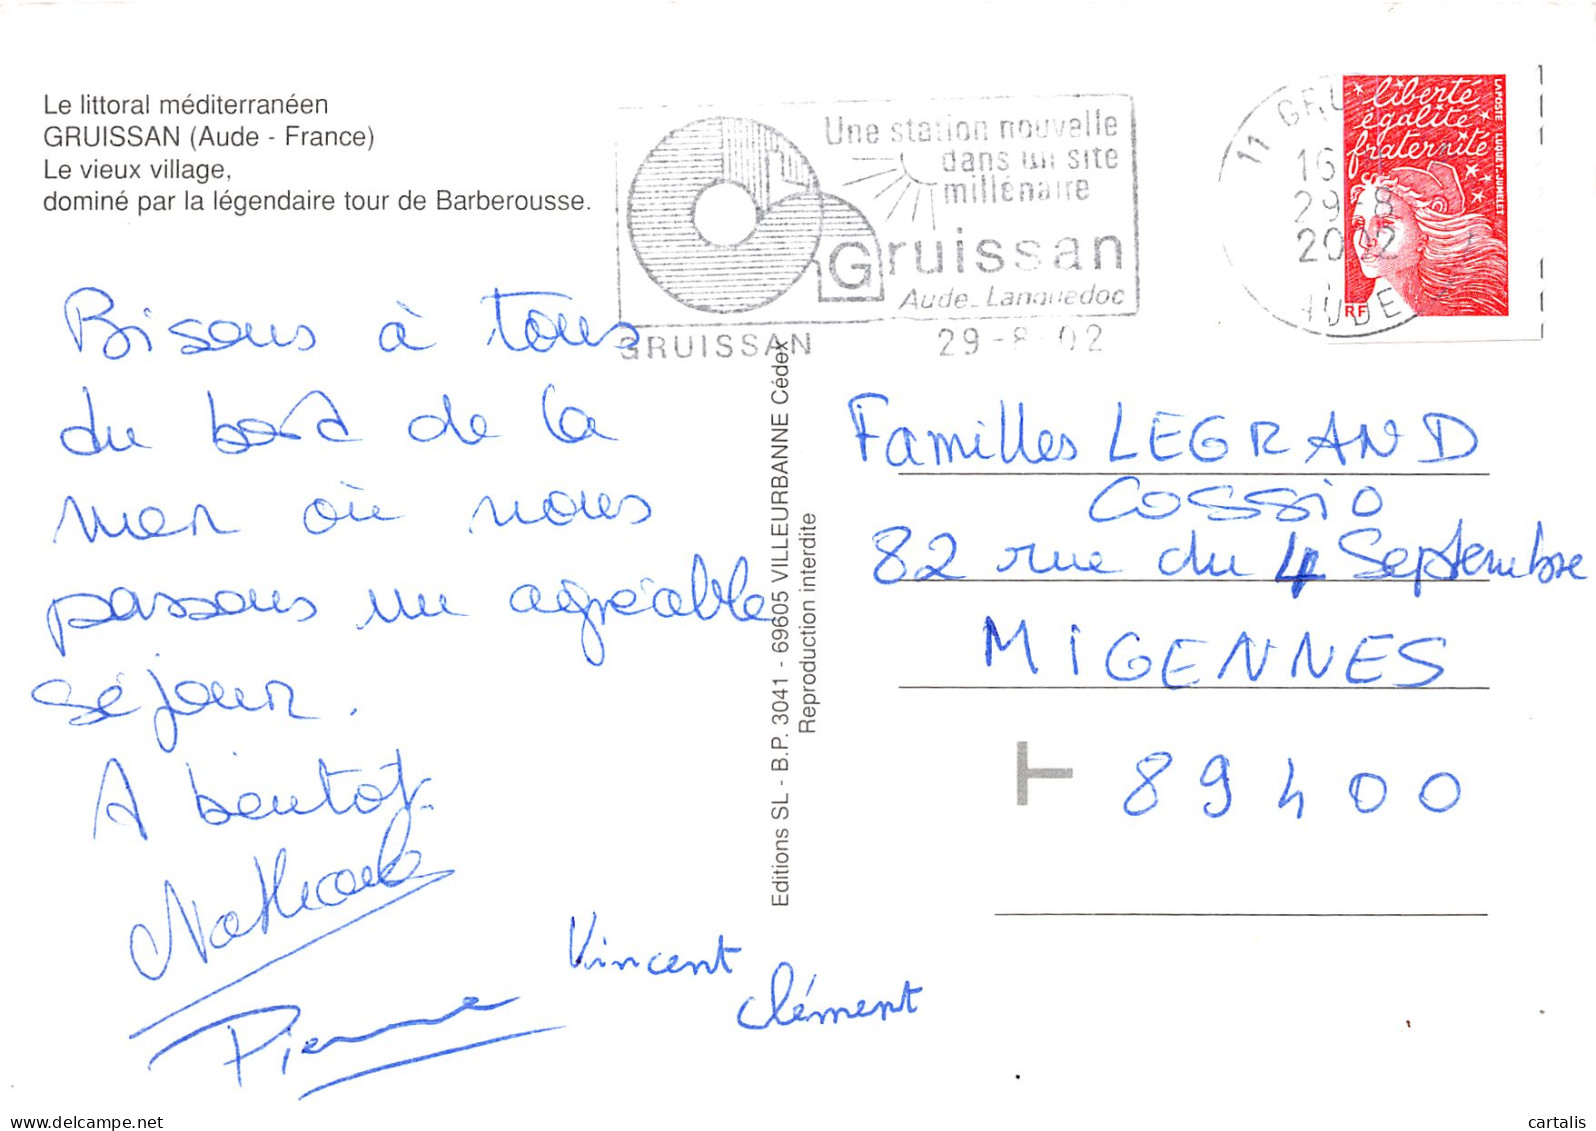 Le littoral méditerranéen
GRUISSAN (Aude - France)
Le vieux village,
dominé par la légendaire tour de Barberousse.
Une station nouvelle
dans un site
millénaire
Gruissan
Aude_Languedoc
GRUISSAN 29-8-02
11 GRU
16
29-8
2002
AUDE
liberté
égalité
fraternité
LAPOSTE LUQUET-JUMELET
RF
Bisous à tous
du bord de la
mer où nous
passons un agréable
séjour.
A bientôt.
Nathcarle
Pierre
Vincent
Clément
Editions SL - B.P. 3041 - 69605 VILLEURBANNE Cédex
Reproduction interdite
Familles LEGRAND
COSSIO
82 rue du 4 Septembre
MIGENNES
89400
delcampe.net
cartalis